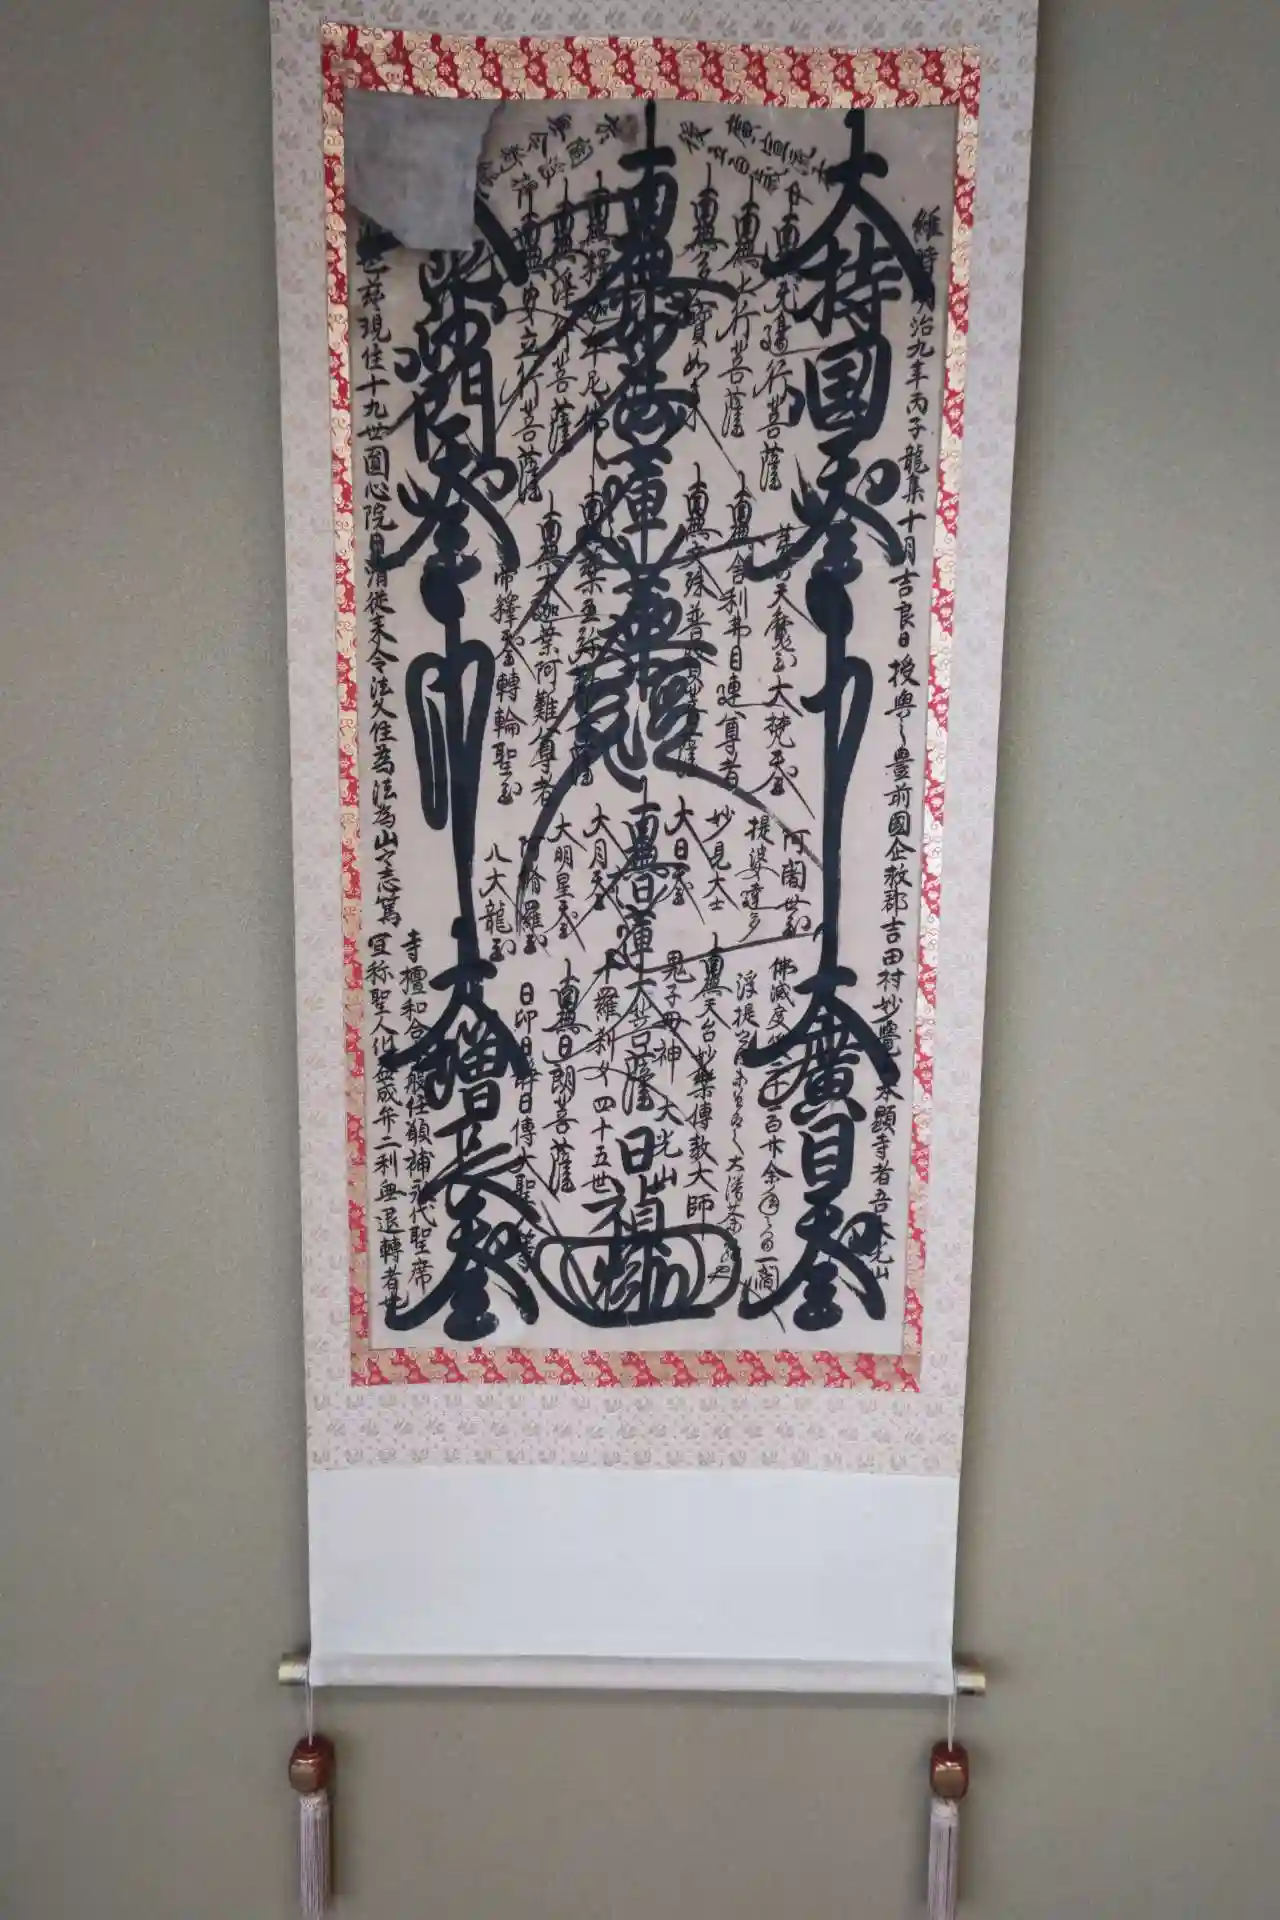 維時明治九年丙子龍集十月吉良日授與之豊前國企救郡吉田村妙覺山本顕寺者吾大光山
大持国天王
大廣目天王
南無無邊行菩薩
南無上行菩薩
南無多寶如来
南無妙法蓮華経
南無釋迦牟尼佛
南無浄行菩薩
南無安立行菩薩
第六天魔王大梵天王
南無舎利弗目連尊者
南無文殊普賢菩薩
南無薬王弥勒菩薩
南無大迦葉阿難尊者
帝釋天王轉輪聖王
阿闍世王
提婆達多
妙見大士
大日天王
南無日蓮大菩薩
大月天王
大明星天王
阿脩羅王
八大龍王
佛滅度後二千二百廿余年之間一閻
浮提之内未曽有之大漫荼羅也
南無天台妙樂傳教大師
鬼子母神
大光山
日禎
四十五世
十羅刹女
南無日朗菩薩
日印日静日傳大聖人等
門天王
大増長天王
現住十九世圓心院日清従来令法久住為法為山之志篤
寺檀和合一般任願補永代聖席
宜称聖人但無成弁二利無退轉者也